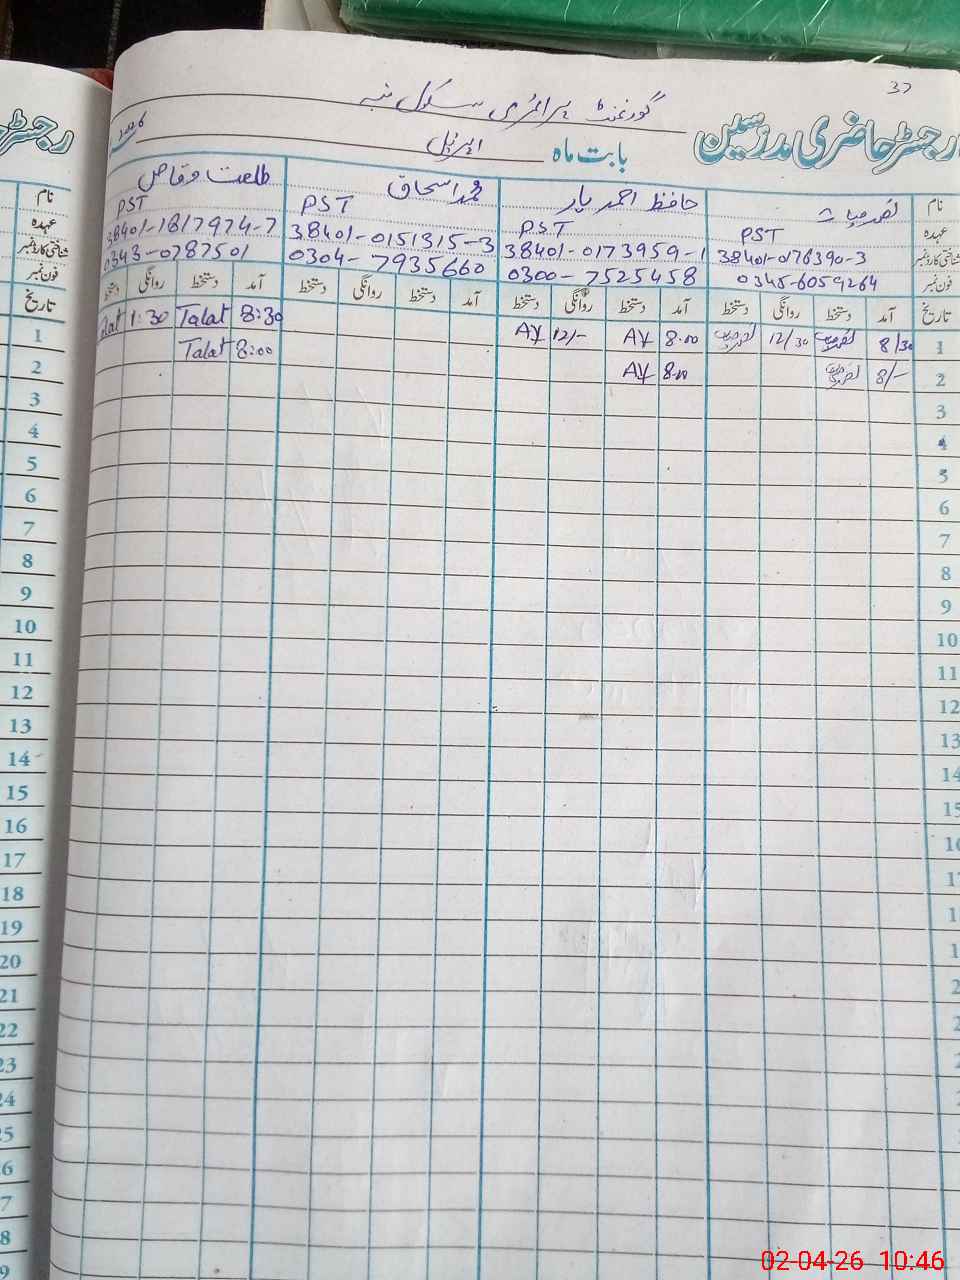 37
گورنمنٹ پرائمری سکول
رجسٹر حاضری مدرسین
بابت ماہ اپریل 2026
نام حافظ احمد یار محمد اسحاق طلعت وقاص
عہدہ PST PST PST PST
شناختی کارڈ نمبر 38401-0176390-3 38401-0173959-1 38401-0151315-3 38401-1817974-7
فون نمبر 0345-6059264 0300-7525458 0304-7935660 0343-0787501
تاریخ آمد دستخط روانگی دستخط آمد دستخط روانگی دستخط آمد دستخط روانگی دستخط آمد دستخط روانگی دستخط
1 8/30 12/30 8.00 AY 12/- AY 8:30 Talat 1:30 Talat
2 8/- 8.00 AY 8:00 Talat
3
4
5
6
7
8
9
10
11
12
13
14
15
رجسٹر حا
نام
عہدہ
شناختی کارڈ نمبر
فون نمبر
تاریخ
1
2
3
4
5
6
7
8
9
10
11
12
13
14
15
16
17
18
19
20
21
22
23
24
02-04-26 10:46